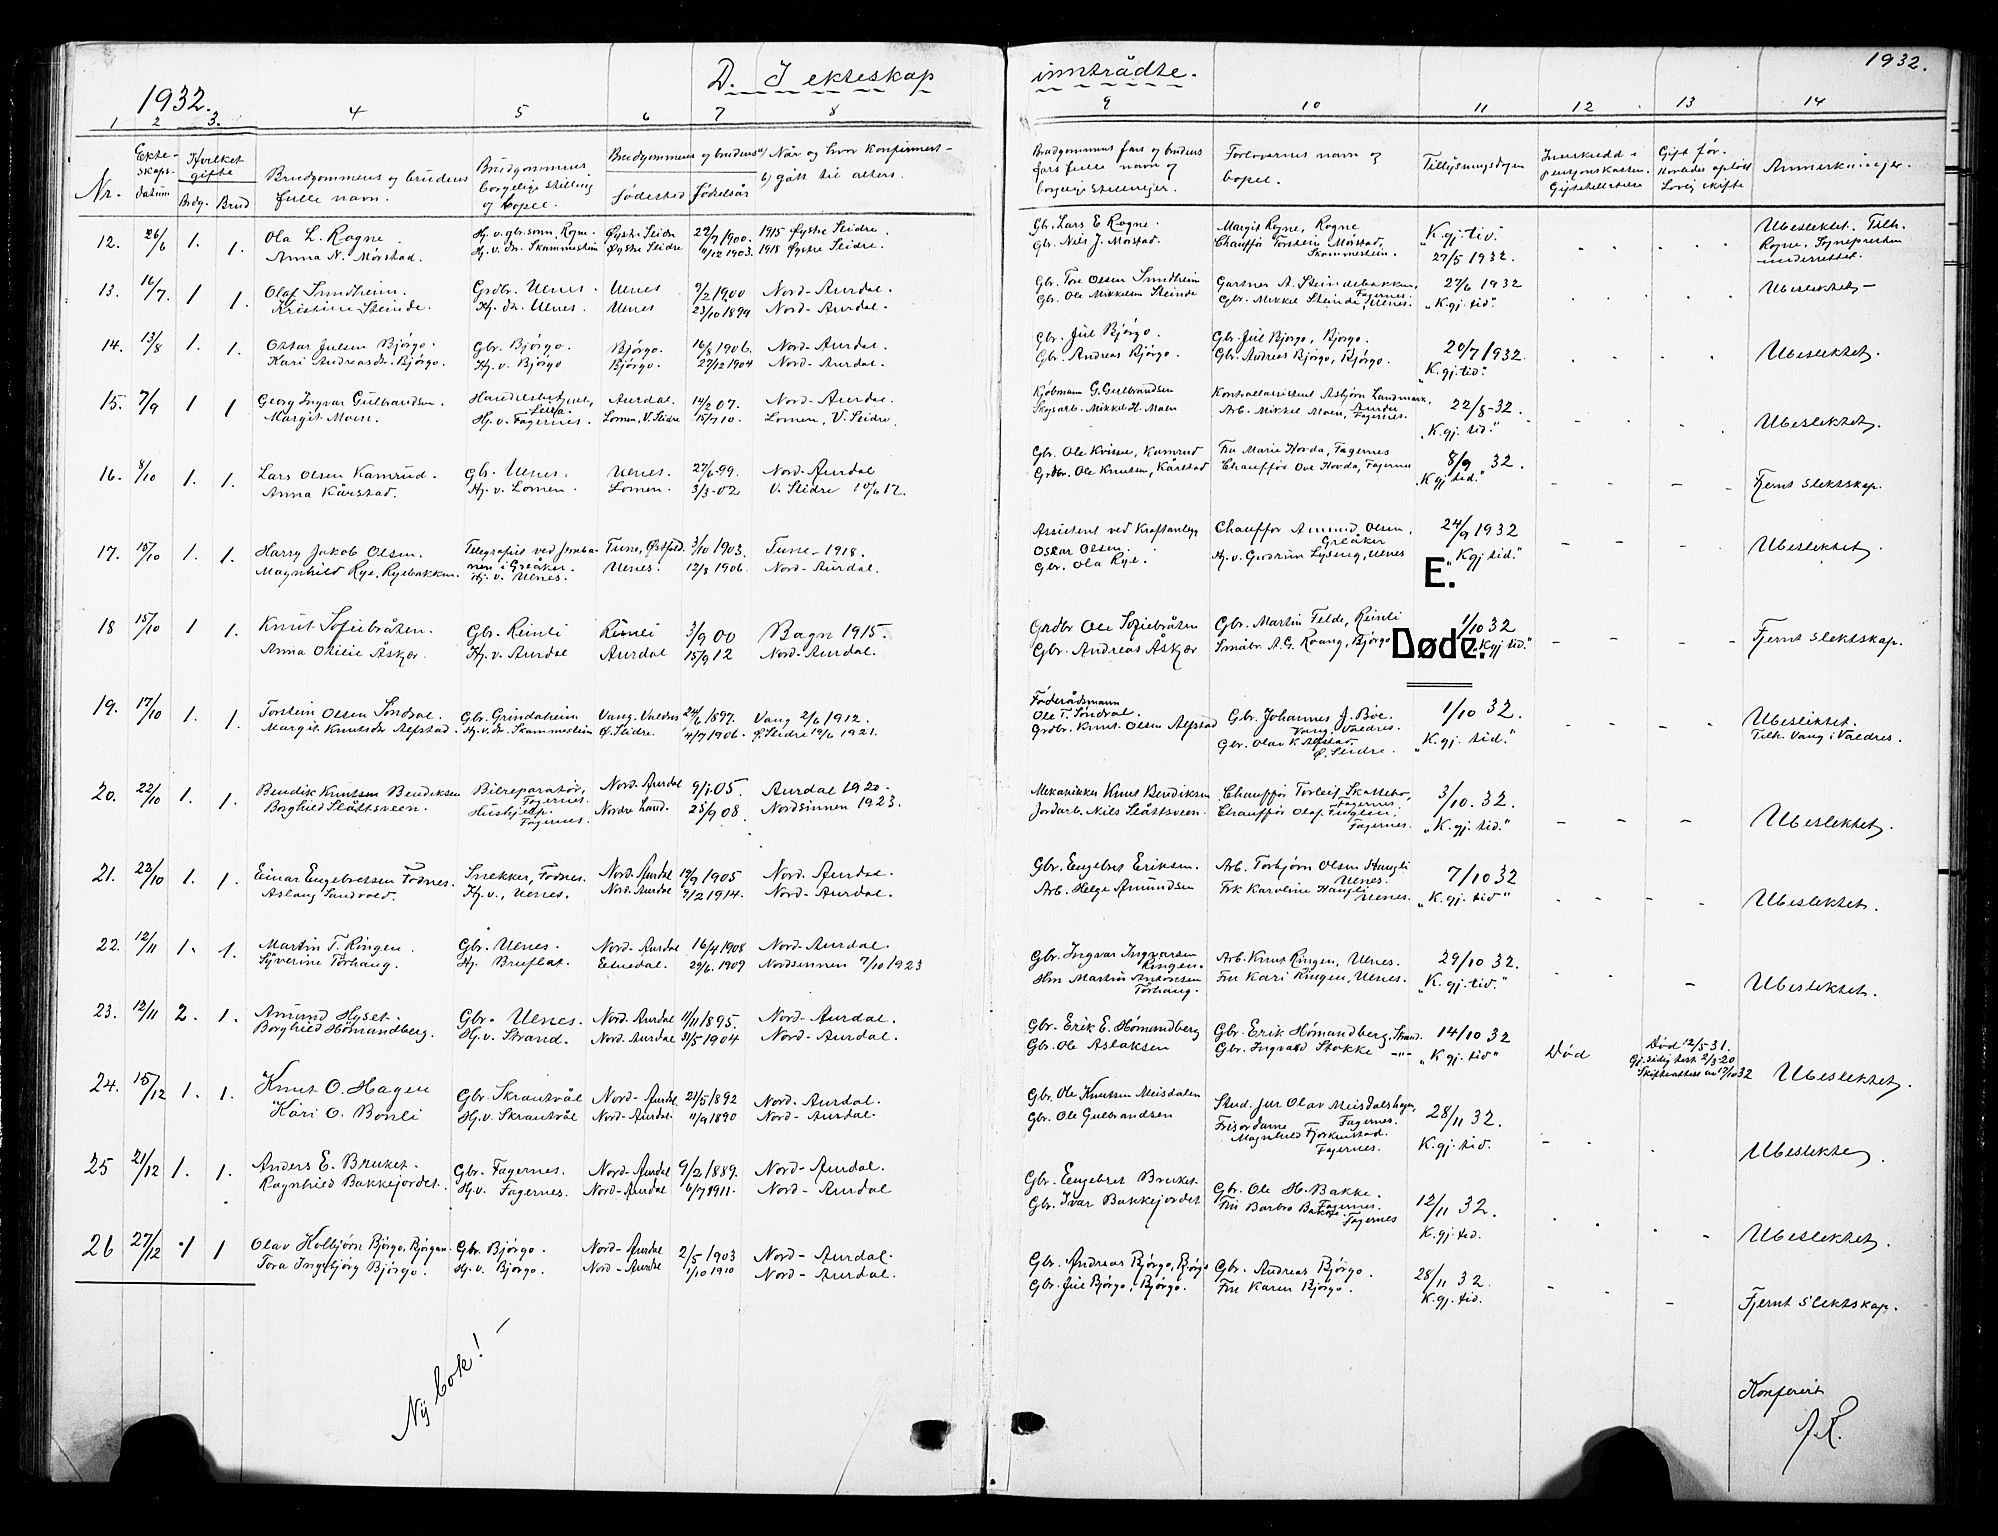 1932.
D. I ekteskap inntrådte.
1932.
1 2 3. 4 5 6 7 8 9 10 11 12 13 14
Nr. Ekteskapsdatum Hvilket gifte Brdg. Brud Brudgommens og brudens fulle navn. Brudgommens borgelige stilling og bopel. Brudgommens og brudens fødested Fødselsår a) Når og hvor konfirmert - b) gått til alters.
Brudgommens fars og brudens fars fulle navn og borgelige stillinger. Forlovernes navn og bopel. Tillysningsdagen Gift før.
12. 26/6 1. 1. Ola L. Rogne. Hj.v. gbr. sønn, Rogne. Øystre Slidre 22/7 1900. 1915 Øystre Slidre. Gbr. Lars E Rogne. Margit Rogne, Rogne "K. gj. tid." Ubeslektet. Tilh.
Anna N. Mørstad. Hj.v. dr. Skammestein Øystre Slidre 11/12 1903. 1918 Øystre Slidre. Gbr. Nils J. Mørstad. Chauffør Torstein Mørstad, Skammestein. 27/5 1932. Rogne, Sognepresten underrettet.
13. 16/7. 1 1. Olaf Sundheim. Grdbr. Ulnes. Ulnes 9/2 1900 Nord-Aurdal. Gbr. Tov Olsen Sundheim Gartner A. Steindebakken, Fagernes. 27/6 1932 Ubeslektet -
Kristine Steinde. Hj. dr. Ulnes. Ulnes 23/10 1899 Nord-Aurdal. Gbr. Ole Mikkelsen Steinde Gbr. Mikkel Steinde, Ulnes. "K. gj. tid."
14. 13/8 1. 1. Oskar Julsen Bjørgo. Gbr. Bjørgo. Bjørgo. 16/8 1906. Nord-Aurdal. Gbr. Jul Bjørgo. Gbr. Jul Bjørgo, Bjørgo. 20/7 1932. Ubeslektet.
Kari Andreasdr. Bjørgo. Hj.v. Bjørgo Bjørgo. 27/12 1904 Nord-Aurdal. Gbr. Andreas Bjørgo. Gbr. Andreas Bjørgo, Bjørgo. "K. gj. tid."
15. 7/9 1 1 Georg Ingvar Gulbrandsen. Handelsbetjent, Leira. Aurdal. 14/2 07. Nord-Aurdal. Kjøbmann G. Gulbrandsen Kontrollassistent Asbjørn Landmark, 22/8-32. Ubeslektet.
Margit Moen. Hj.v. Fagernes. Lomen, V. Slidre 15/7 10. Lomen, V. Slidre. Skogsarb. Mikkel H. Moen Arb. Mikkel Moen, Fagernes. "K. gj. tid."
16. 8/10 1. 1. Lars Olsen Kamrud. Gbr. Ulnes. Ulnes. 27/6-99. Nord-Aurdal Gbr. Ole Kvien, Kamrud Fru Marie Hovda, Fagernes 8/9 32. Fjernt slektskap.
Anna Kårstad. Hj.v. Lomen. Lomen. 3/3-02 V. Slidre 10/6 17. Grdbr. Ole Knutsen, Kårstad Chauffør Ole Hovda, Fagernes "K gj tid."
17. 15/10 1. 1. Harry Jakob Olsen. Telegrafist ved jernbanen i Greåker. Tune, Østfold. 3/10 1903. Tune - 1918. Assistent ved Kraftanlegg Oskar Olsen. Chauffør Amund Olsen, Greåker 24/9 1932 Ubeslektet.
Magnhild Rye, Ryebakken. Hj.v. Ulnes. Ulnes. 12/8 1906. Nord-Aurdal. Gbr. Ola Rye. Hj.v. Gudrun Lyseng, Ulnes "K gj. tid."
E.
18 15/10 1 1. Knut Sofiebråten. Gbr. Reinli Reinli 3/9 00 Bagn 1915. Grdbr Ole Sofiebråten Gbr. Martin Felde, Reinli 1/10 32 Fjernt slektskap.
Anna Otilie Åskjer. Hj.v. Aurdal Aurdal 15/9 12 Nord-Aurdal. Gbr. Andreas Åskjer Småbr. A.G. Roang, Bjørgo "K gj tid."
Døde.
19. 17/10 1. 1. Torstein Olsen Søndrol. Gbr. Grindaheim Vang. Valdres 24/6 1897. Vang 2/6 1912. Føderådsmann Ole T. Søndrol. Gbr. Johannes J. Bøe. Vang, Valdres. 1/10 32. Ubeslektet.
Margit Knutsdr. Alfstad. Hj.v. dr. Skammestein Ø. Slidre. 4/7 1906. Ø. Slidre 19/6 1921. Grdbr. Knut Olsen Alfstad Gbr. Olav K Alfstad, Ø. Slidre. "K. gj. tid." Tilh. Vang i Valdres.
20. 22/10 1. 1. Bendik Knutsen Bendiksen Bilreparatør, Fagernes. Nord-Aurdal 9/1 05. Aurdal 1920. Mekaniker Knut Bendiksen Chauffør Torleif Skattebo, Fagernes. 3/10. 32. Ubeslektet.
Borghild Slåttsveen. Hushjelp. Fagernes. Nordre Land. 25/9 08. Nordsinnen 1923. Jordarb. Nils Slåttsveen. Chauffør Olaf Fuglei, Fagernes. "K. gj. tid."
21. 22/10 1. 1. Einar Engebretsen Fodnes. Snekker, Fodnes. Nord-Aurdal 19/9 1905 Nord-Aurdal. Gbr. Engebret Eriksen. Arb. Torbjørn Olsen Haugli Ulnes. 7/10 32 Ubeslektet.
Aslaug Sandvold. Hj.v., Ulnes. Nord-Aurdal 9/2 1914. Nord-Aurdal. Arb. Helge Amundsen Frk Karoline Haugli Ulnes. "K. gj. tid"
22. 12/11 1. 1. Martin T. Ringen. Gbr. Ulnes. Nord-Aurdal 16/4 1908 Nord-Aurdal. Gbr. Ingvar Ingvarsen Ringen. Arb. Knut Ringen, Ulnes. 29/10 32. Ubeslektet.
Syverine Tørhaug. Hj. Bruflat. Etnedal. 29/6. 1909 Nordsinnen 7/10 1923 Hm Martin Antonsen Tørhaug. Fru Kari Ringen, Ulnes. "K. gj. tid."
23. 12/11 2. 1. Amund Hyset. Gbr. Ulnes. Nord-Aurdal 11/11 1895. Nord-Aurdal. Gbr. Erik E. Hømandberg Gbr. Erik Hømandberg, Strand. 14/10 32 Død Død 12/5-31. Ubeslektet.
Borghild Hømandberg. Hj.v. Strand. Nord-Aurdal 31/5 1904 Nord-Aurdal. Gbr. Ole Aslaksen Gbr. Ingvald Stokke -"- "K. gj. tid" Skifteattest av 17/10 32
24. 15/12 1. 1. Knut O. Hagen Gbr. Skrautvål Nord-Aurdal 21/5 1892 Nord-Aurdal. Gbr. Ole Knutsen Meisdalen Stud. jur Olav Meisdalshagen, Fagernes. 28/11 32. Ubeslektet
Kari O. Bonli Hj.v. Skrautvål Nord-Aurdal 11/9 1890 Nord-Aurdal. Gbr. Ole Gulbrandsen Frisørdame Magnhild Fjorkenstad. Fagernes. K. gj. tid.
25 21/12 1. 1. Anders E. Bruket. Gbr. Fagernes. Nord-Aurdal 9/2 1889. Nord-Aurdal. Gbr. Engebret Bruket Gbr. Ole H. Bakke. Fagernes. 12/11 32. Ubeslektet.
Ragnhild Bakkejordet. Hj.v. Fagernes. Nord-Aurdal 6/7 1911. Nord-Aurdal Gbr. Ivar Bakkejordet Fru Barbro Bakke. Fagernes K. gj. tid.
26 27/12 1 1 Olav Kolbjørn Bjørgo, Bjørgan. Gbr. Bjørgo. Nord-Aurdal 2/5 1903 Nord-Aurdal. Gbr. Andreas Bjørgo, Bjørgo Gbr. Andreas Bjørgo. 28/11 32. Fjernt slektskap.
Tora Ingebjørg Bjørgo. Hj.v. Bjørgo. Nord-Aurdal 1/10 1910 Nord-Aurdal. Gbr. Jul Bjørgo, Bjørgo. Fru Karen Bjørgo. K. gj. tid.
Ny bok! -
Konferert
A.R.